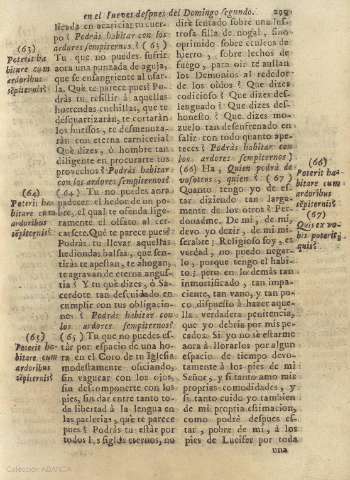 en el Jueves despues del Domingo segundo. 299
llenada en acariciar tu cuer-
po? Podrás habitar con los
ardores sempiternos? (63)
Tu que no puedes sufrir
aora una puntada de aguja,
que se ensangriente al usar-
la. Què te parece pues? Po-
drás tu, resistir à aquellas
horrendas cuchillas, que te
desquartizarán, te cortarán
los huessos, te desmenuza-
rán con eterna carniceria?
Què dizes, ò hombre tan
diligente en procurarte tus
provechos? Podrás habitar
con los ardores sempiternos?
(64) Tu no puedes aora
padecer el hedor de un po-
bre, el qual te ofende ligera-
mente el olfato al cer-
carte. Què te parece pues?
Podrás tu llevar aquellas
hediondas balsas, que sen-
tirás te apestan, te ahogan,
te agravan de eterna angus-
tia? Y tu què dizes, ò Sa-
cerdote tan descuidado en
cumplir con tus obligacio-
nes? Podrás habitar con
los ardores sempiternos?
(65) Tu que no puedes es-
tár por espacio de una ho-
ra en el Coro de tu Iglesia
modestamente oficiando,
sin vaguear con los ojos,
sin descomponerte con los
pies, sin dar entre tanto to-
da libertad à la lengua en
las parlerias, què te parece
pues? Podrás tu estár por
todos los siglos eternos, no
(63)
Poterit ha-
bitare cum
ardoribus
sēpiternis?
(64)
Poterit ha-
bitare cum
ardoribus
sēpiternis?
(65)
Poterit ha-
bitare cum
ardoribus
sēpiternis?
dire sentado sobre una les-
trosa silla de nogal, sino
oprimido sobre ceuleos de
hierro, sobre lechos de
fuego, para oir te aullan
los Demonios al rededor
de los oidos? Que dizes
codicioso? Que dizes des-
lenguado? Que dizes des-
honesto? Que dizes mo-
zuelo tan desenfrenado en
salir con todo quanto ape-
teces? Podrás habitar con
los ardores sempiternos?
(66) Ha, Quien podrá de
vosotros, quien? (67)
Quanto tengo yo de es-
tar diziendo tan larga-
mente de los otros? Per-
donadme. De mi, de mi,
devo yo dezir, de mi mi-
serable; Religioso soy, es
verdad, no puedo negar-
lo, porque tengo el habi-
to; pero en lo demàs tan
inmortificado, tan impa-
ciente, tan vano, y tan po-
co dispuesto à hazer aque-
lla verdadera penitencia,
que yo debría por mis pe-
cados. Si yo no se estarme
aora à llorarlos por algun
espacio de tiempo devo-
tamente à los pies de mi
Señor, y si tanto amo mis
proprias comodidades, y
si tanto cuido yo tambien
de mi propria estimacion,
como podrè despues es-
tar, pobre de mi, à los
pies de Lucifer por toda
una
(66)
Poterit ha-
bitare cum
ardoribus
sēpiternis?
(67)
Quis ex vo-
bis poterit,
quis?
Colección ABANCA